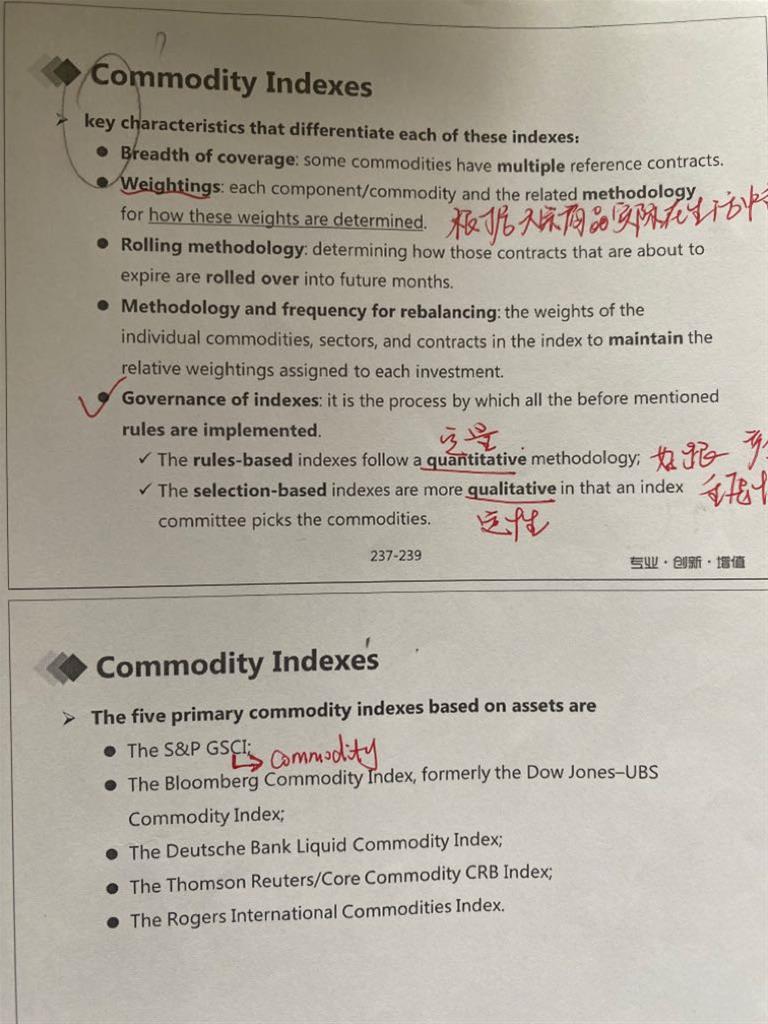 ?
Commodity Indexes
➢ key characteristics that differentiate each of these indexes:
● Breadth of coverage: some commodities have multiple reference contracts.
● Weightings: each component/commodity and the related methodology
for how these weights are determined. 根据大宗商品实际在生活中
● Rolling methodology: determining how those contracts that are about to
expire are rolled over into future months.
● Methodology and frequency for rebalancing: the weights of the
individual commodities, sectors, and contracts in the index to maintain the
relative weightings assigned to each investment.
● Governance of indexes: it is the process by which all the before mentioned
rules are implemented.
定量
✓ The rules-based indexes follow a quantitative methodology;
✓ The selection-based indexes are more qualitative in that an index
committee picks the commodities. 定性
237-239
专业·创新·增值
Commodity Indexes
➢ The five primary commodity indexes based on assets are
● The S&P GSCI;
↳ Commodity
● The Bloomberg Commodity Index, formerly the Dow Jones–UBS
Commodity Index;
● The Deutsche Bank Liquid Commodity Index;
● The Thomson Reuters/Core Commodity CRB Index;
● The Rogers International Commodities Index.